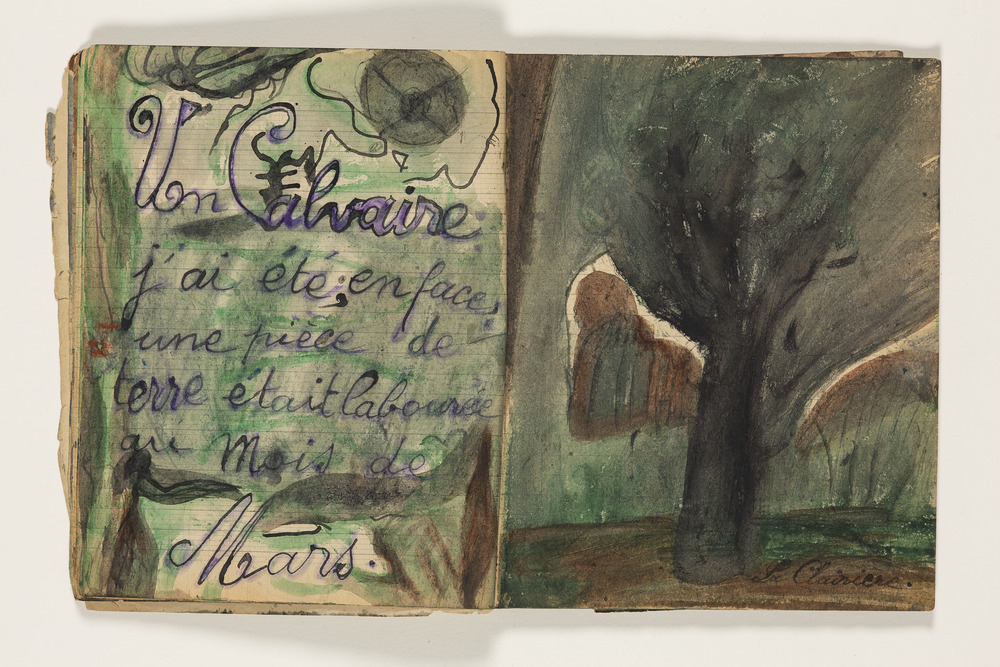 Un Calvaire
j'ai été, en face,
une pièce de
terre était labourée
au Mois de
Mars.
La Clairière.